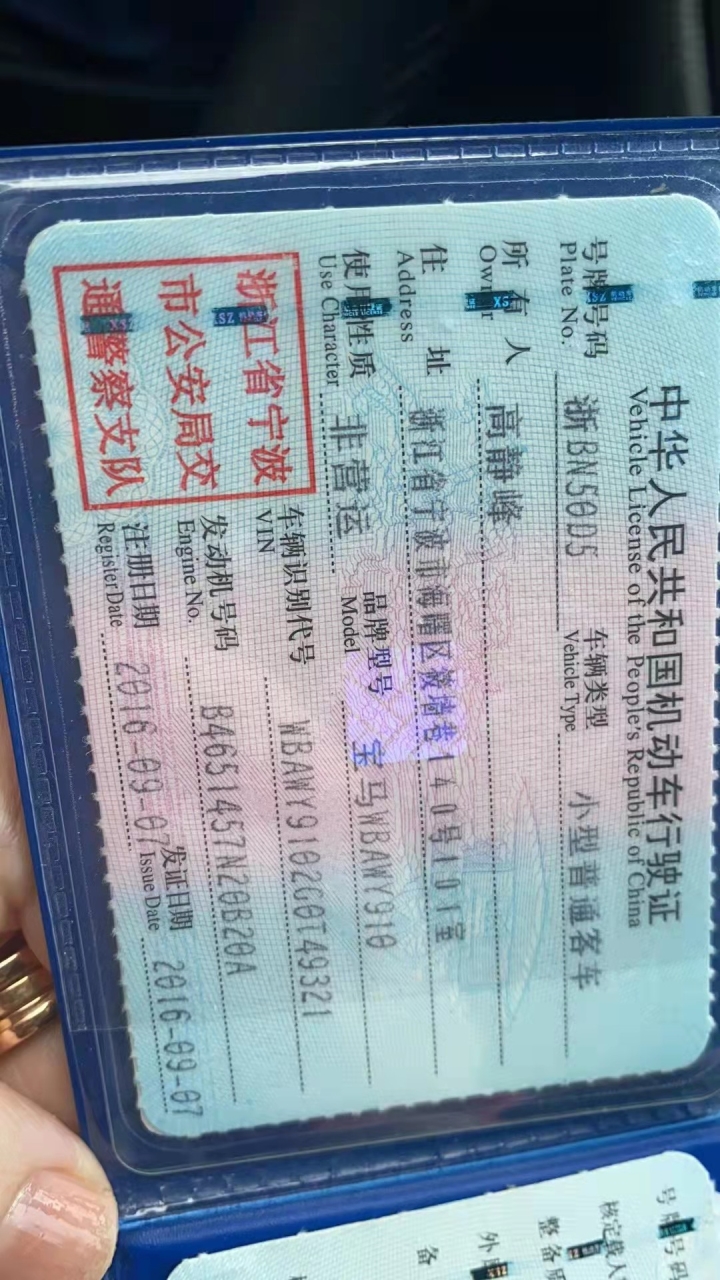 中华人民共和国机动车行驶证
Vehicle License of the People's Republic of China
号牌号码 浙BN50D5 车辆类型 小型普通客车
Plate No. Vehicle Type
所有人 高静峰
Owner
住址 浙江省宁波市海曙区 巷140号101室
Address
使用性质 非营运 品牌型号 宝马WBAWY910
Use Character Model
浙江省宁波
市公安局交
通警察支队
车辆识别代号 WBAWY9102G0T49321
VIN
发动机号码 B4651457N20B20A
Engine No.
注册日期 2016-09-07 发证日期 2016-09-07
Register Date Issue Date
号牌号码
核定载人
整备质
外
备